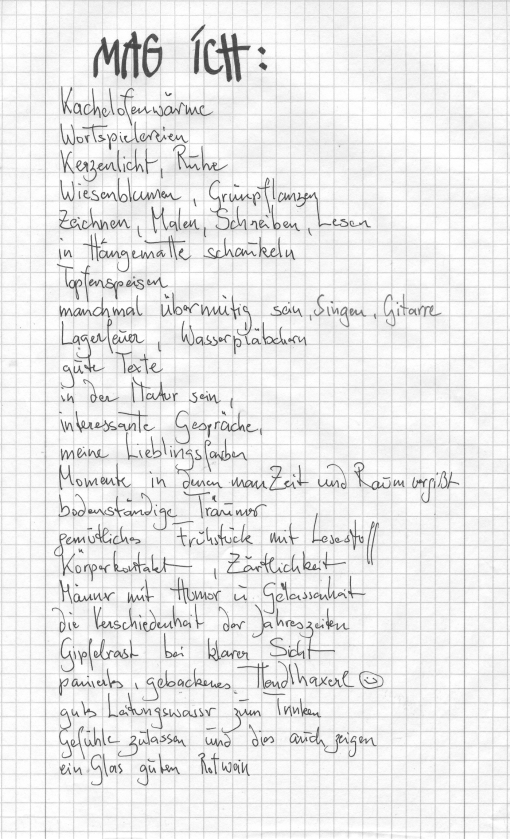 MAG ICH:
Kachelofenwärme
Wortspielereien
Kerzenlicht, Ruhe
Wiesenblumen, Grünpflanzen
Zeichnen, Malen, Schreiben, Lesen
in Hängematte schaukeln
Topfenspeisen
manchmal übermütig sein, Singen, Gitarre
Lagerfeuer, Wasserplätschern
gute Texte
in der Natur sein,
interessante Gespräche,
meine Lieblingsfarben
Momente in denen man Zeit und Raum vergißt
bodenständige Träumer
gemütliches Frühstück mit Lesestoff
Körperkontakt, Zärtlichkeit
Männer mit Humor u Gelassenheit
die Verschiedenheit der Jahreszeiten
Gipfelrast bei klarer Sicht
paniertes, gebackenes Hendlhaxerl ☺
gutes Leitungswasser zum Trinken
Gefühle zulassen und dies auch zeigen
ein Glas guten Rotwein